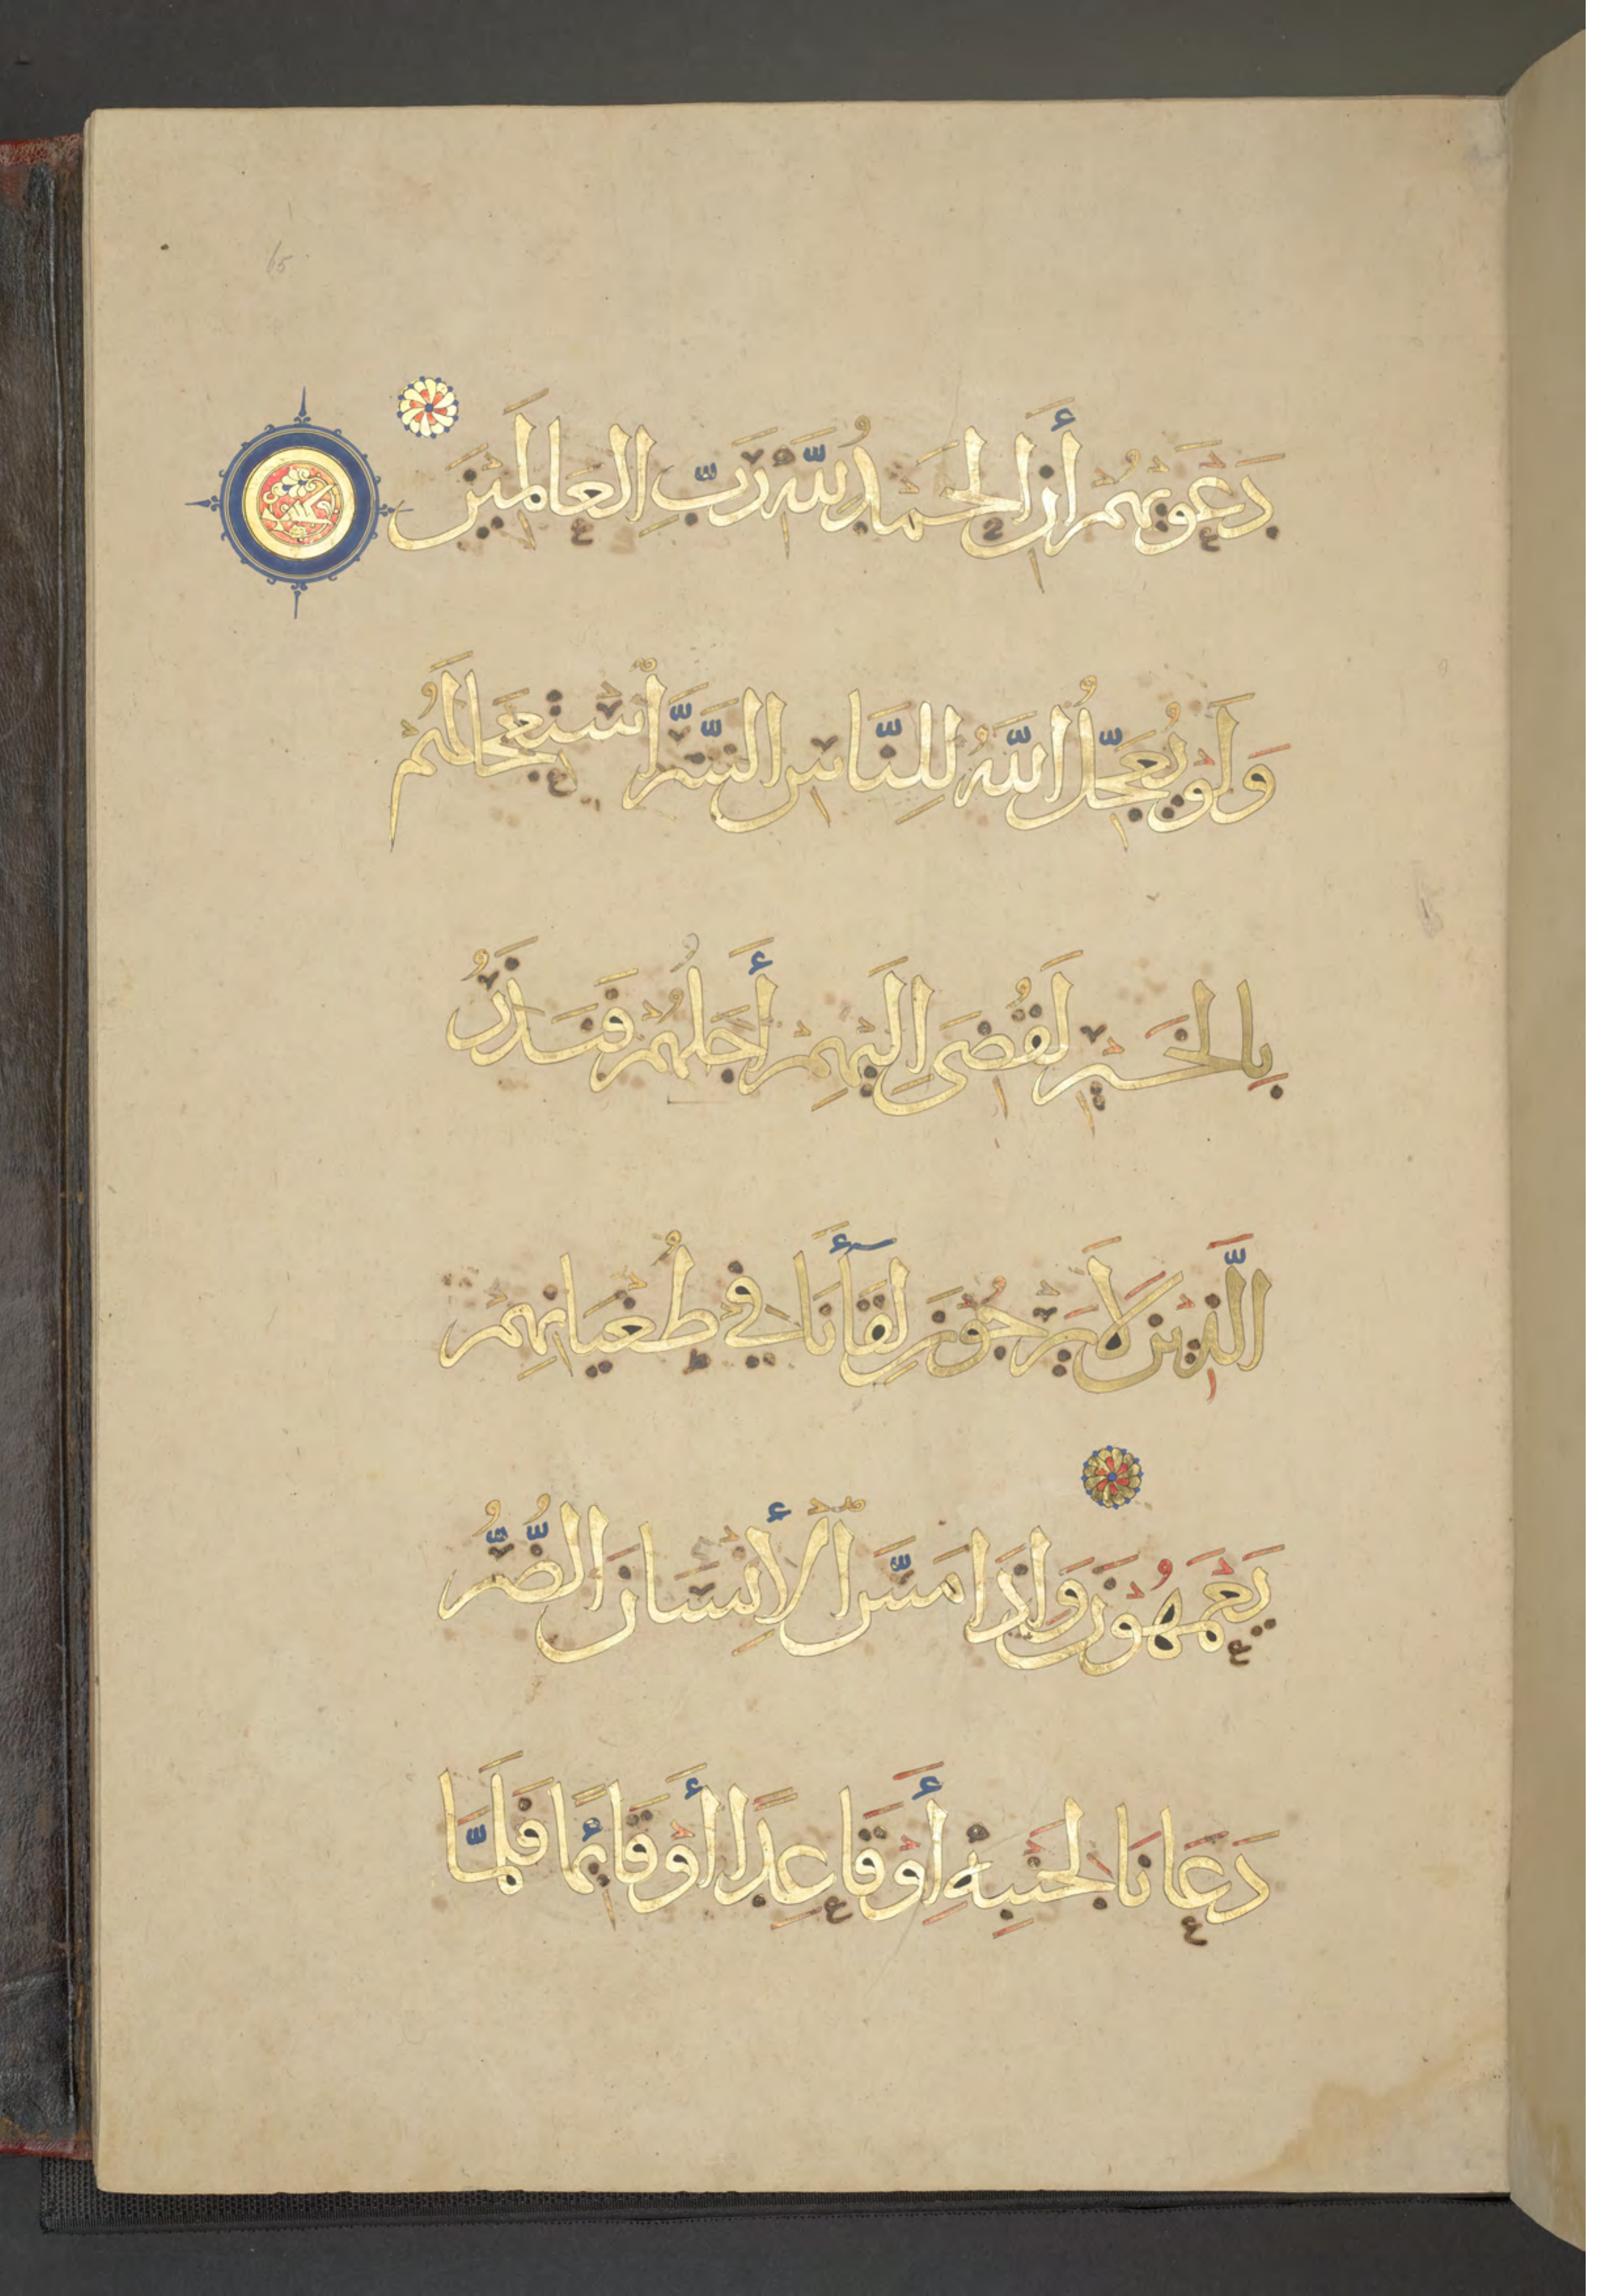 65
دَعْوَيهُمْ أَنِ الْحَمْدُ لِلَّهِ رَبِّ الْعَالَمِيْنَ
وَلَوْ يُعَجِّلُ اللَّهُ لِلنَّاسِ الشَّرَّ اسْتِعْجَالَهُمْ
بِالْخَيْرِ لَقُضِيَ إِلَيْهِمْ أَجَلُهُمْ فَنَذَرُ
الَّذِيْنَ لَا يَرْجُوْنَ لِقَآءَنَا فِي طُغْيَانِهِمْ
يَعْمَهُوْنَ وَإِذَا مَسَّ الْإِنْسَانَ الضُّرُّ
دَعَانَا لِجَنْبِهِ أَوْ قَاعِدًا أَوْ قَائِمًا فَلَمَّا